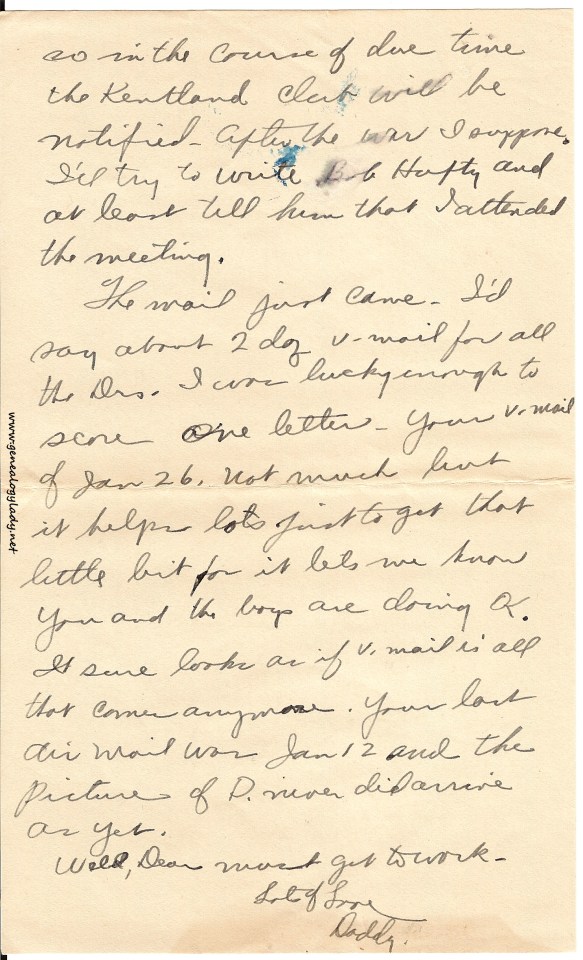 so in the course of due time
the Kentland Club will be
notified - after the war I suppose.
I'll try to write Bob Hufty and
at least tell him that I attended
the meeting.
The mail just came - I'd
say about 2 doz v-mail for all
the Drs. I was lucky enough to
score one letter - your v-mail
of Jan 26. Not much but
it helps lots just to get that
little bit for it lets me know
you and the boys are doing OK.
It sure looks as if v. mail is all
that comes anymore. Your last
air mail was Jan 12 and the
picture of D. never did arrive
as yet.
Well, Dear must get to work -
Lots of Love
Daddy.
www.genealogylady.net